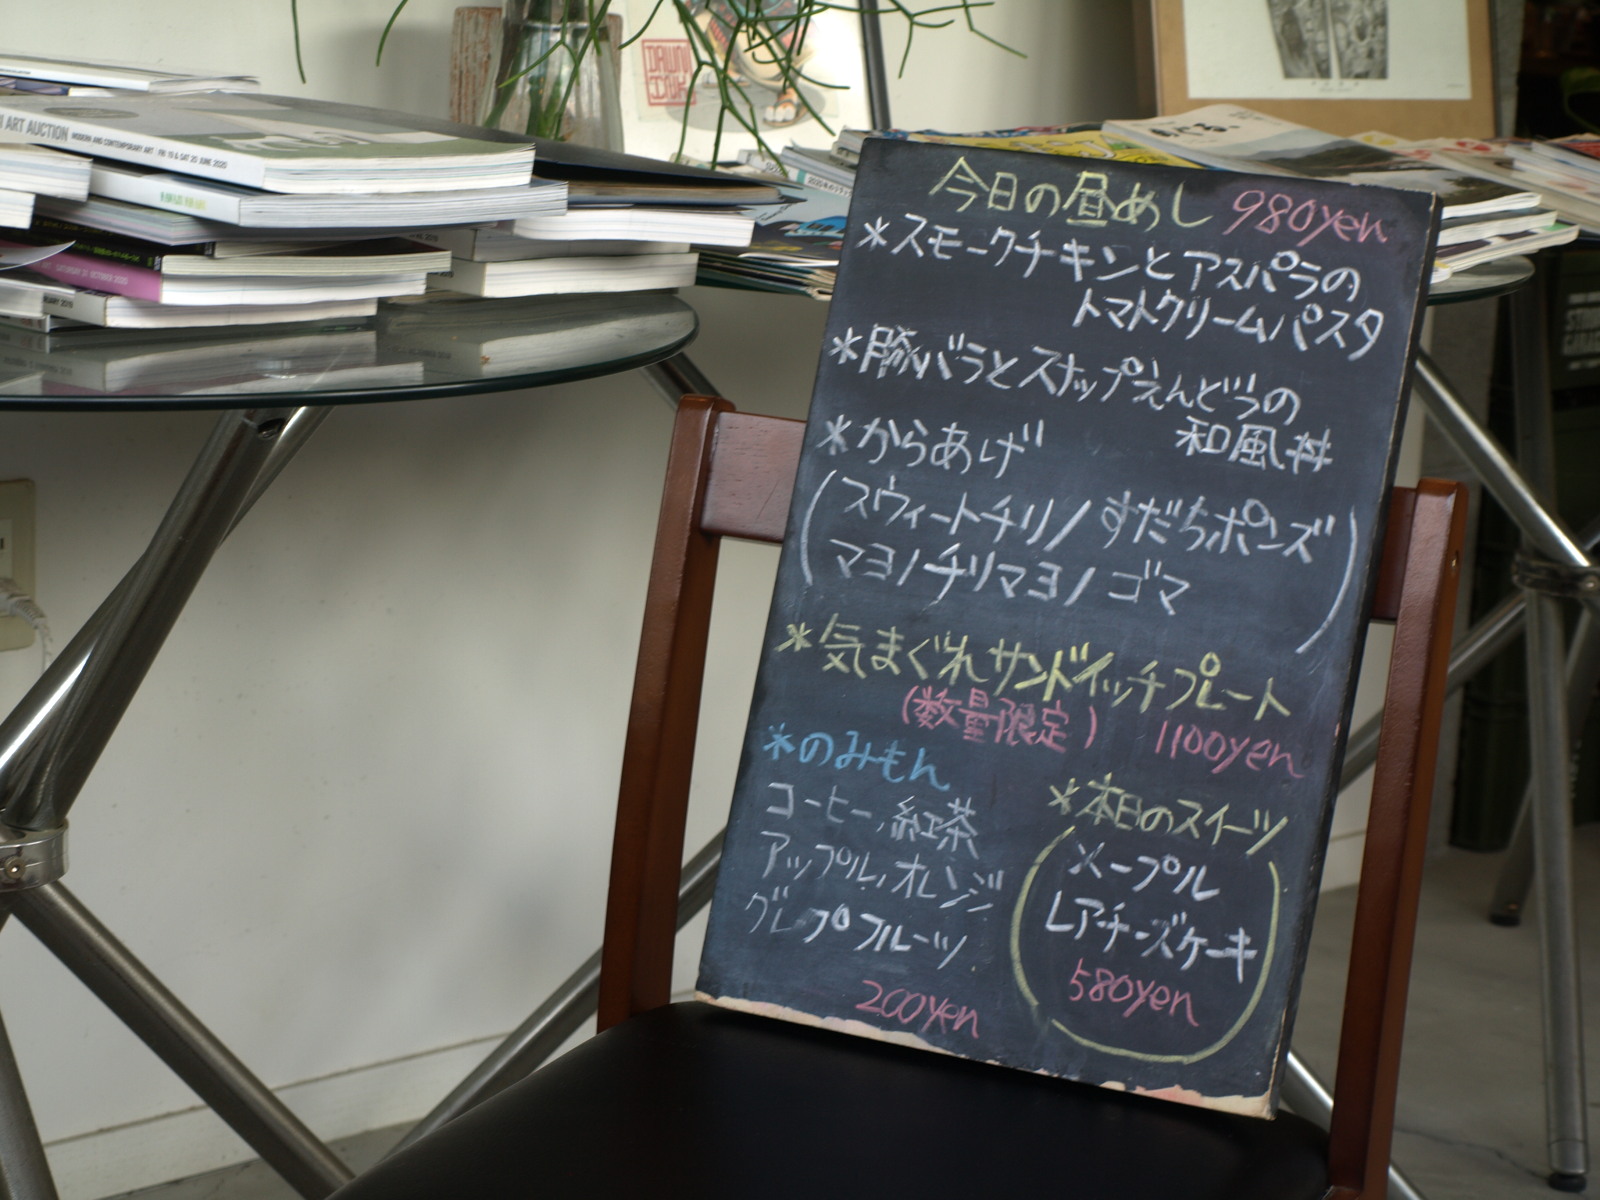 ART AUCTION MODERN AND CONTEMPORARY ART | FRI 19 & SAT 20 JUNE 2020
SATURDAY 31 OCTOBER 2020
今日の昼めし 980yen
*スモークチキンとアスパラの
トマトクリームパスタ
*豚バラとスナップえんどうの
和風丼
*からあげ
(スウィートチリ/すだちポンズ
マヨ/チリマヨ/ゴマ)
*気まぐれサンドイッチプレート
(数量限定) 1100yen
*のみもん
コーヒー,紅茶
アップル,オレンジ
グレープフルーツ
200yen
*本日のスイーツ
メープル
レアチーズケーキ
580yen